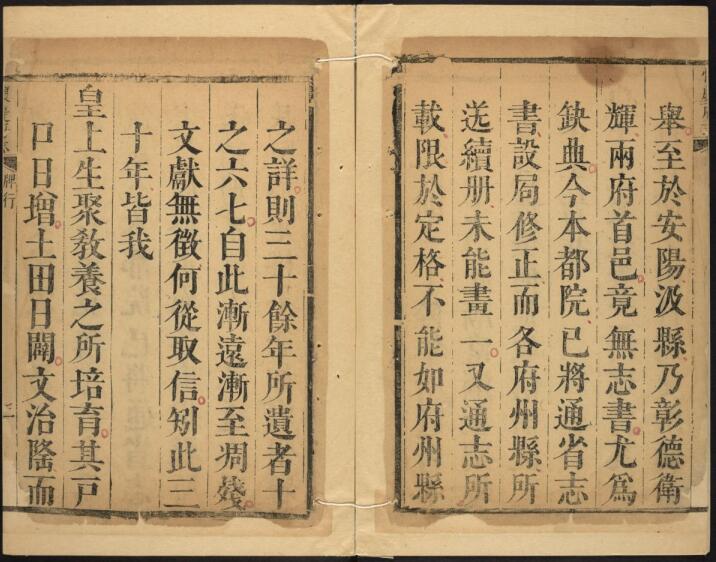 舉至於安陽汲縣乃彰德衛
輝兩府首邑竟無志書尤爲
缺典今本都院已將通省志
書設局修正而各府州縣所
送續册未能畫一又通志所
載限於定格不能如府州縣
之詳則三十餘年所遺者十
之六七自此漸遠漸至凋殘
文獻無徵何從取信矧此三
十年皆我
皇上生聚敎養之所培育其戸
口日增土田日闢文治隆而
牌行